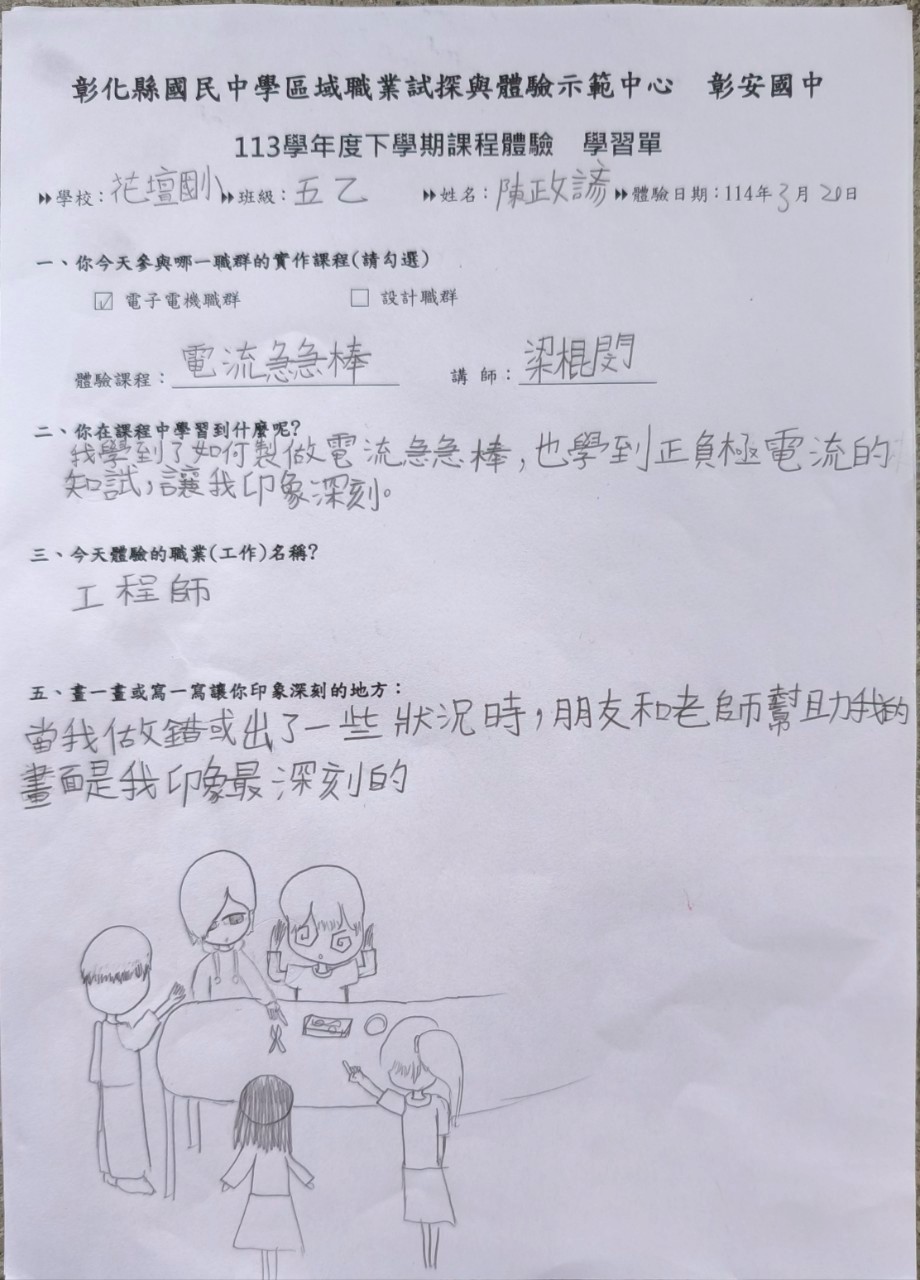 彰化縣國民中學區域職業試探與體驗示範中心　彰安國中
113學年度下學期課程體驗　學習單
▸▸學校：花壇國小 ▸▸班級：五乙 ▸▸姓名：陳政諺 ▸▸體驗日期：114年3月20日
一、你今天參與哪一職群的實作課程(請勾選)
☑ 電子電機職群　☐ 設計職群
體驗課程：電流急急棒　講師：梁棍閔
二、你在課程中學習到什麼呢?
我學到了如何製做電流急急棒，也學到正負極電流的
知試，讓我印象深刻。
三、今天體驗的職業(工作)名稱?
工程師
五、畫一畫或寫一寫讓你印象深刻的地方：
當我做錯或出了一些狀況時，朋友和老師幫助我的
畫面是我印象最深刻的